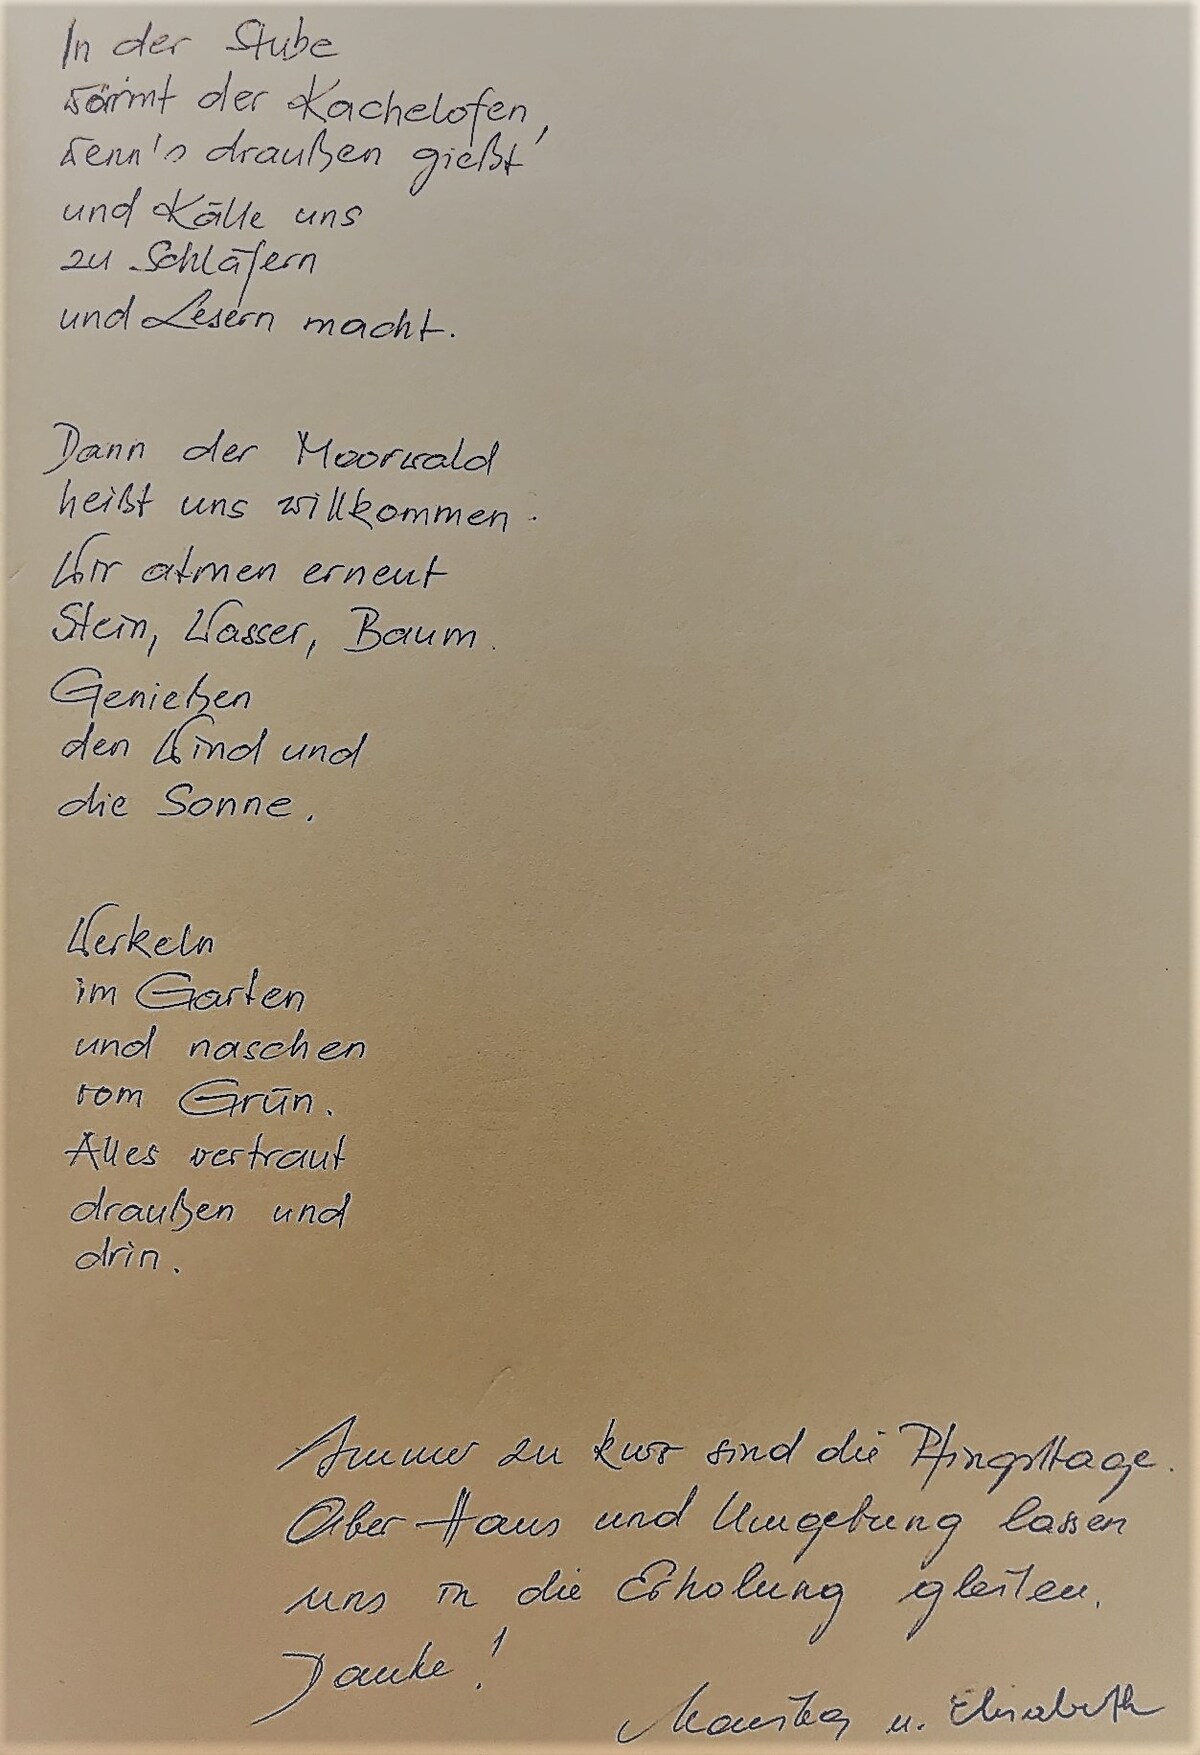 In der Stube
wärmt der Kachelofen,
wenn's draußen gießt
und Kälte uns
zu Schläfern
und Lesern macht.
Dann der Moorwald
heißt uns willkommen.
Wir atmen erneut
Stein, Wasser, Baum.
Genießen
den Wind und
die Sonne.
Werkeln
im Garten
und naschen
vom Grün.
Alles vertraut
draußen und
drin.
Immer zu kurz sind die Pfingsttage.
Aber Haus und Umgebung lassen
uns in die Erholung gleiten.
Danke!
u. Elisabeth